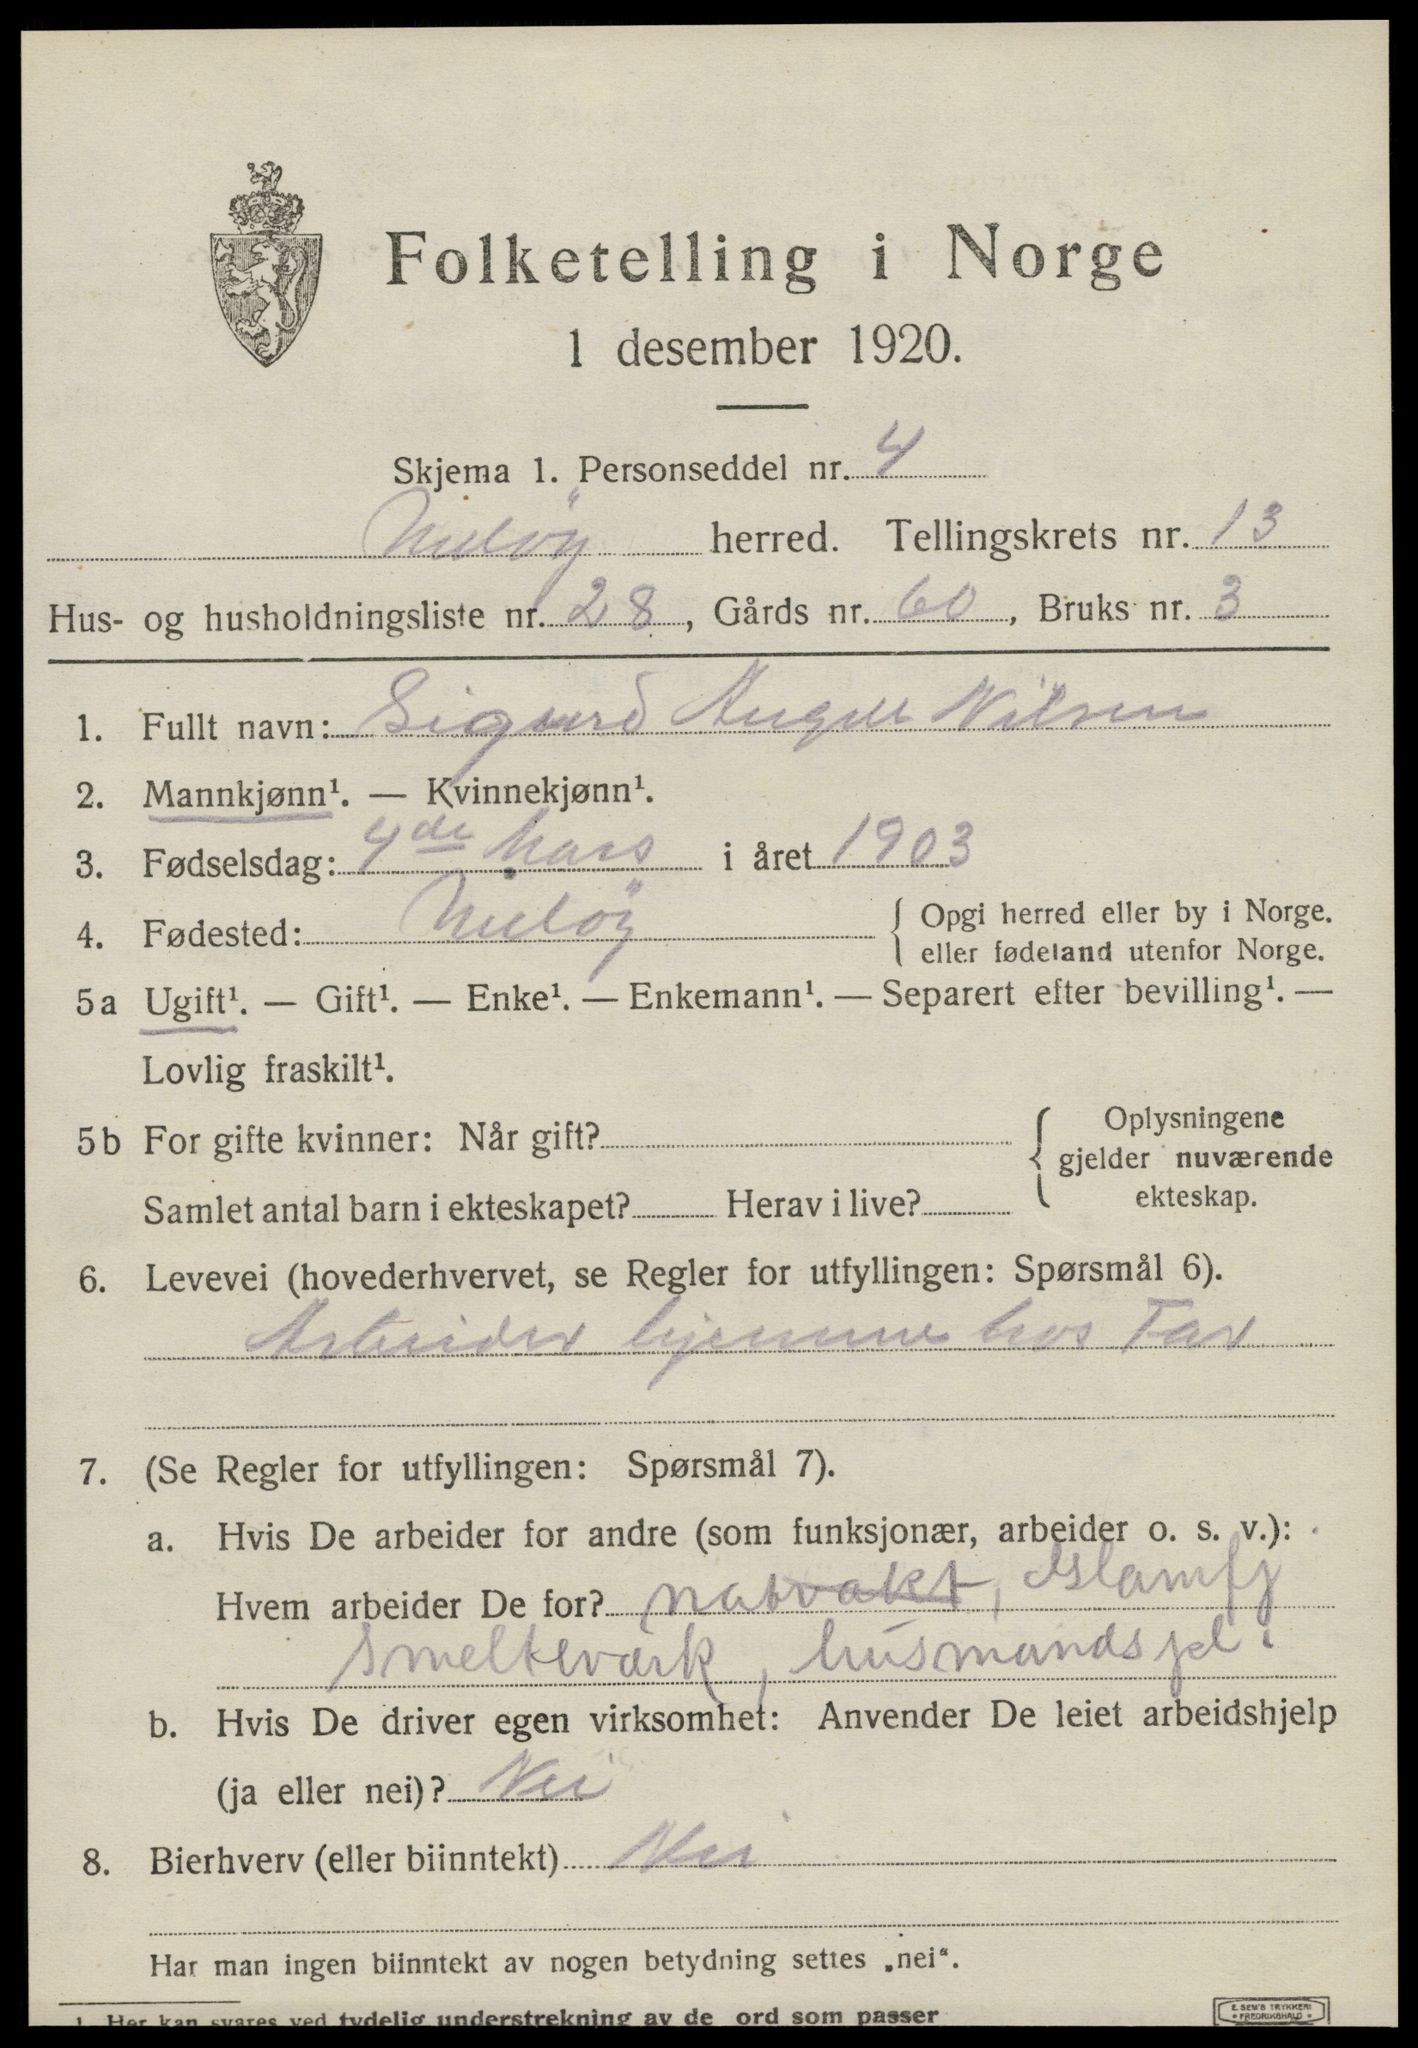 Folketelling i Norge
1 desember 1920.
Skjema 1. Personseddel nr. 4
Meløy herred. Tellingskrets nr. 13
Hus- og husholdningsliste nr. 28, Gårds nr. 60, Bruks nr. 3
1. Fullt navn: Sigurd Angel Nilsen
2. Mannkjønn¹. — Kvinnekjønn¹.
3. Fødselsdag: 4de Mars i året 1903
4. Fødested: Meløy { Opgi herred eller by i Norge.
eller fødeland utenfor Norge.
5a Ugift¹. — Gift¹. — Enke¹. — Enkemann¹. — Separert efter bevilling¹. —
Lovlig fraskilt¹.
5b For gifte kvinner: Når gift? { Oplysningene
gjelder nuværende
Samlet antal barn i ekteskapet? Herav i live? ekteskap.
6. Levevei (hovederhvervet, se Regler for utfyllingen: Spørsmål 6).
Arbeider hjemme hos Far
7. (Se Regler for utfyllingen: Spørsmål 7).
a. Hvis De arbeider for andre (som funksjonær, arbeider o. s. v.):
Hvem arbeider De for? natvakt, Glamfj
Smelteverk, husmandspl.
b. Hvis De driver egen virksomhet: Anvender De leiet arbeidshjelp
(ja eller nei)? Nei
8. Bierhverv (eller biinntekt) Nei
Har man ingen biinntekt av nogen betydning settes „nei“.
1. Her kan svares ved tydelig understrekning av de ord som passer
E. SEM'S TRYKKERI
FREDRIKSHALD